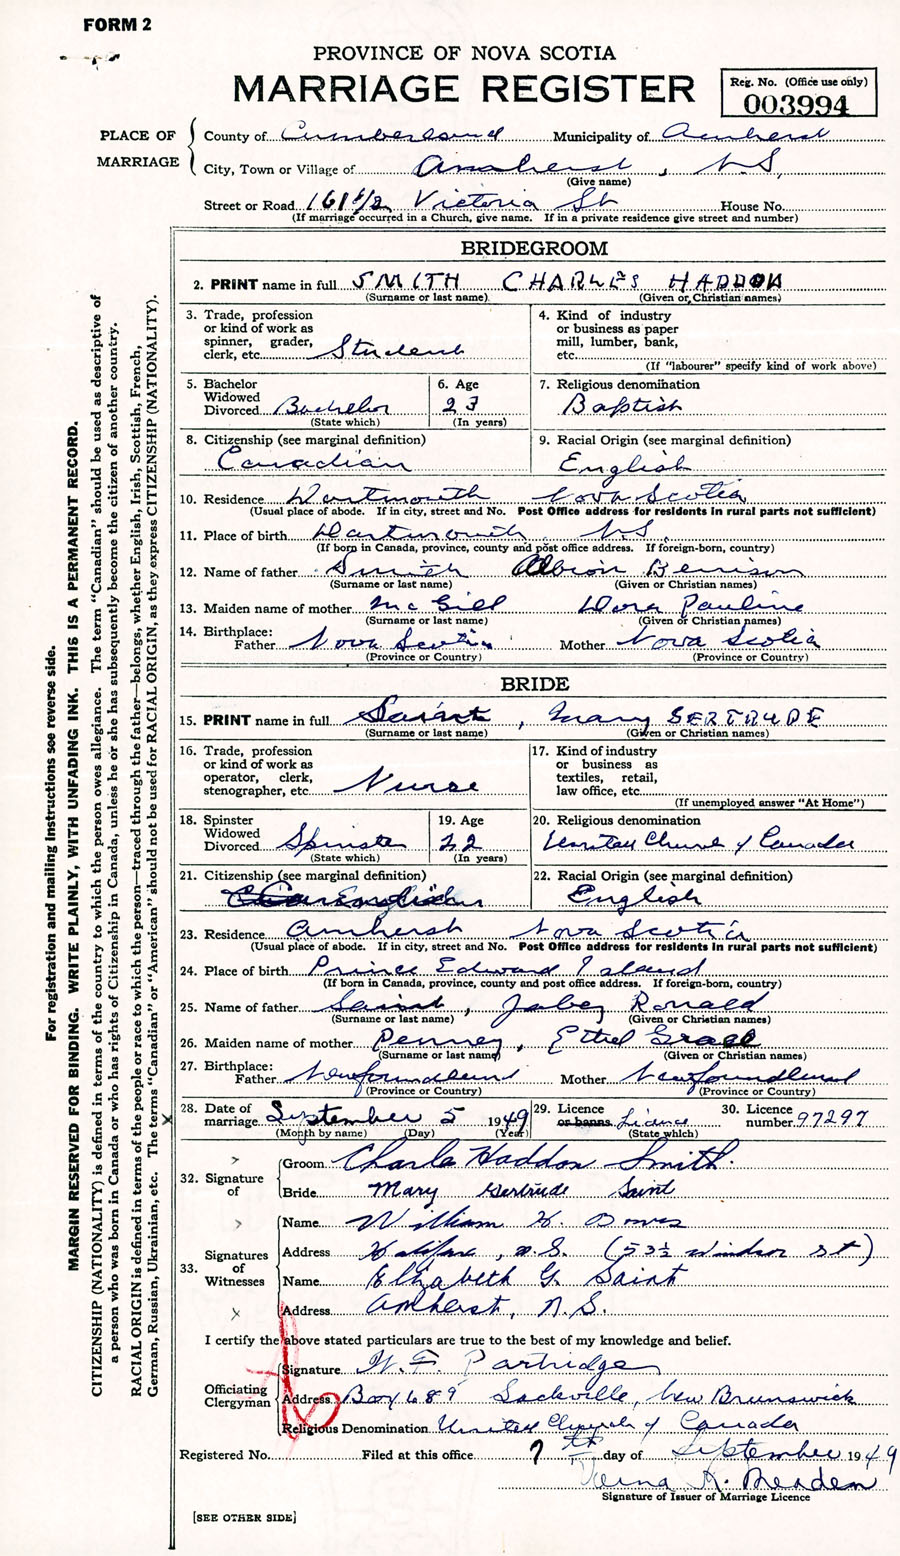 FORM 2
PROVINCE OF NOVA SCOTIA
MARRIAGE REGISTER
Reg. No. (Office use only)
003994
PLACE OF MARRIAGE
County of Cumberland Municipality of Amherst
City, Town or Village of Amherst, N.S.
(Give name)
Street or Road 161 1/2 Victoria St House No.
(If marriage occurred in a Church, give name. If in a private residence give street and number)
BRIDEGROOM
2. PRINT name in full SMITH CHARLES HADDON
(Surname or last name) (Given or Christian names)
3. Trade, profession or kind of work as spinner, grader, clerk, etc. Student
4. Kind of industry or business as paper mill, lumber, bank, etc.
(If "labourer" specify kind of work above)
5. Bachelor Widowed Divorced Bachelor
(State which)
6. Age 23
(In years)
7. Religious denomination
Baptist
8. Citizenship (see marginal definition)
Canadian
9. Racial Origin (see marginal definition)
English
10. Residence Dartmouth Nova Scotia
(Usual place of abode. If in city, street and No. Post Office address for residents in rural parts not sufficient)
11. Place of birth Dartmouth N.S.
(If born in Canada, province, county and post office address. If foreign-born, country)
12. Name of father Smith Albion Benison
(Surname or last name) (Given or Christian names)
13. Maiden name of mother McGill Dora Pauline
(Surname or last name) (Given or Christian names)
14. Birthplace:
Father Nova Scotia Mother Nova Scotia
(Province or Country) (Province or Country)
BRIDE
15. PRINT name in full Saint, Mary GERTRUDE
(Surname or last name) (Given or Christian names)
16. Trade, profession or kind of work as operator, clerk, stenographer, etc. Nurse
17. Kind of industry or business as textiles, retail, law office, etc.
(If unemployed answer "At Home")
18. Spinster Widowed Divorced Spinster
(State which)
19. Age 22
(In years)
20. Religious denomination
United Church of Canada
21. Citizenship (see marginal definition)
22. Racial Origin (see marginal definition)
English
23. Residence Amherst Nova Scotia
(Usual place of abode. If in city, street and No. Post Office address for residents in rural parts not sufficient)
24. Place of birth Prince Edward Island
(If born in Canada, province, county and post office address. If foreign-born, country)
25. Name of father Saint, Jabez Ronald
(Surname or last name) (Given or Christian names)
26. Maiden name of mother Penney, Ethel Grace
(Surname or last name) (Given or Christian names)
27. Birthplace:
Father Newfoundland Mother Newfoundland
(Province or Country) (Province or Country)
28. Date of marriage September 5 1949
(Month by name) (Day) (Year)
29. Licence or banns Licence
(State which)
30. Licence number 97297
32. Signature of
Groom Charles Haddon Smith.
Bride Mary Gertrude Saint
33. Signatures of Witnesses
Name William H.
Address Halifax, N.S. (53½ Windsor St)
Name Elizabeth G. Saint
Address Amherst, N.S.
I certify the above stated particulars are true to the best of my knowledge and belief.
Officiating Clergyman
Signature W. F. Partridge
Address Box 689 Sackville, New Brunswick
Religious Denomination United Church of Canada
Registered No. Filed at this office 7th day of September 1949
K.
Signature of Issuer of Marriage Licence
[SEE OTHER SIDE]
For registration and mailing instructions see reverse side.
MARGIN RESERVED FOR BINDING. WRITE PLAINLY, WITH UNFADING INK. THIS IS A PERMANENT RECORD.
CITIZENSHIP (NATIONALITY) is defined in terms of the country to which the person owes allegiance. The term "Canadian" should be used as descriptive of
a person who was born in Canada or who has rights of Citizenship in Canada, unless he or she has subsequently become the citizen of another country.
RACIAL ORIGIN is defined in terms of the people or race to which the person—traced through the father—belongs, whether English, Irish, Scottish, French,
German, Russian, Ukrainian, etc. The terms "Canadian" or "American" should not be used for RACIAL ORIGIN, as they express CITIZENSHIP (NATIONALITY).